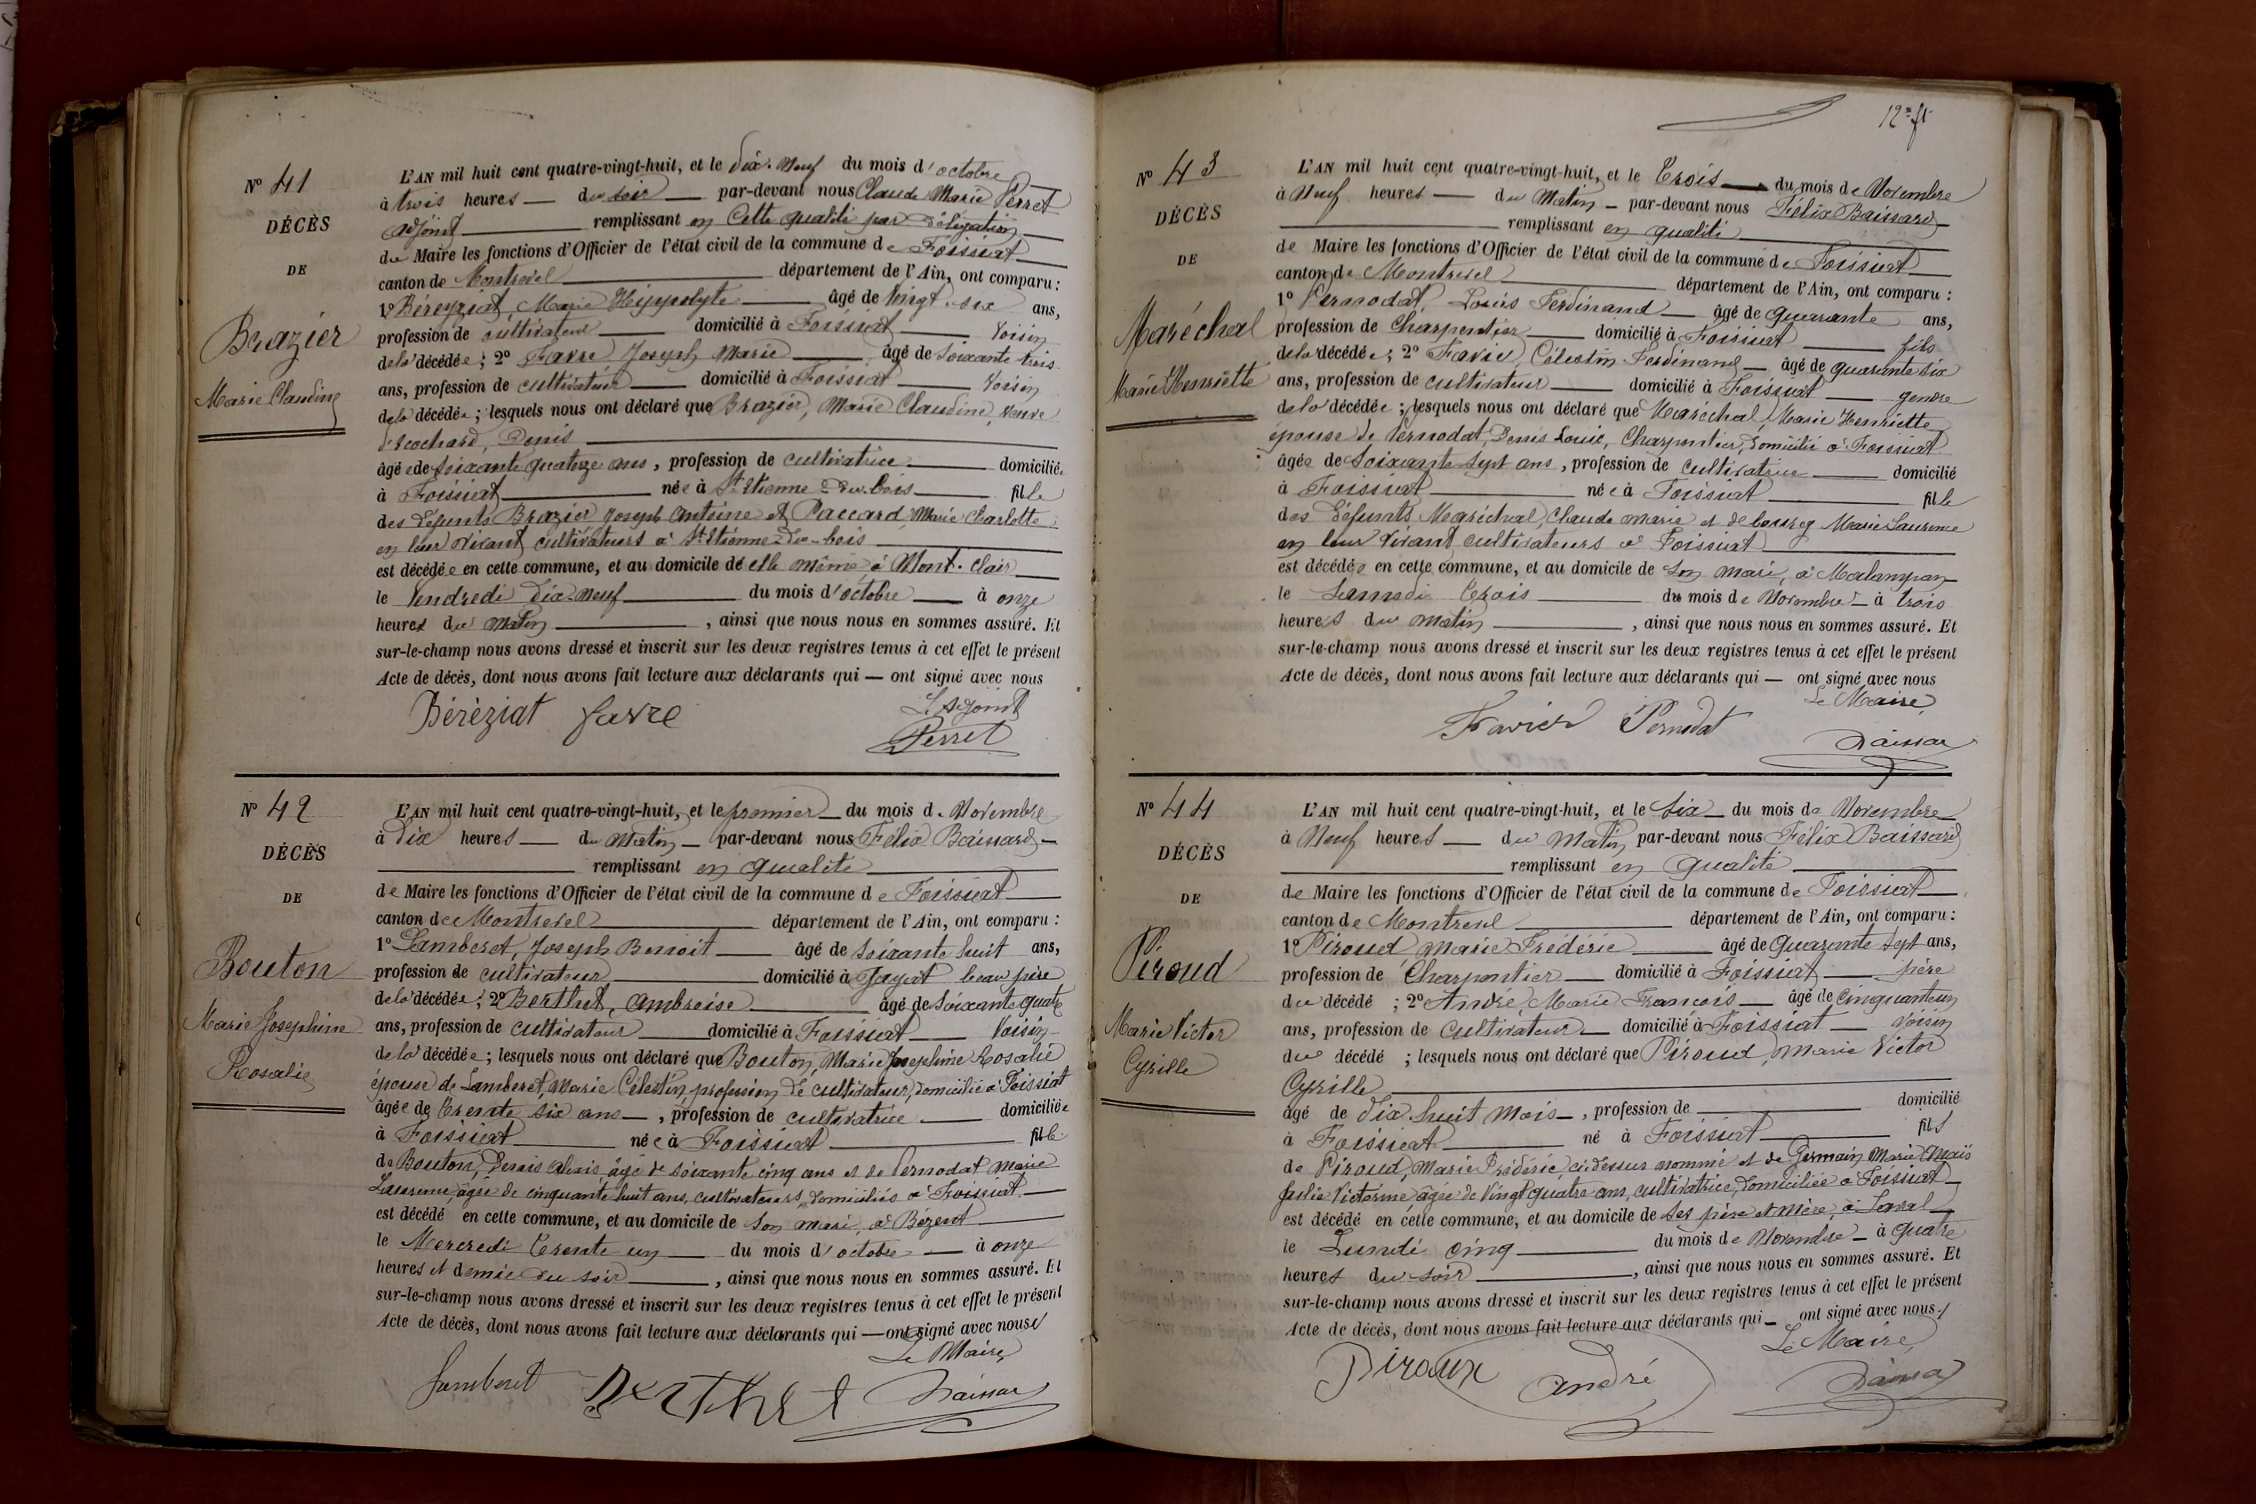 N° 41
DÉCÈS
DE
Brazier
Marie Claudine
L'AN mil huit cent quatre-vingt-huit, et le dix-neuf du mois d'octobre
à trois heures du soir par-devant nous Claude Marie Perret
adjoint remplissant en cette qualité par délégation
du Maire les fonctions d'Officier de l'état civil de la commune de Foissiat
canton de Montrevel département de l'Ain, ont comparu :
1° Béreyziat, Marie Hyppolyte âgé de vingt-six ans,
profession de cultivateur domicilié à Foissiat voisin
de la décédée ; 2° Favre Joseph Marie âgé de soixante trois
ans, profession de cultivateur domicilié à Foissiat voisin
de la décédée ; lesquels nous ont déclaré que Brazier, Marie Claudine, veuve
Denis
âgée de soixante quatorze ans, profession de cultivatrice domiciliée
à Foissiat née à St Etienne-du-bois fille
des défunts Brazier Joseph Antoine et Paccard Marie Charlotte
en leur vivant cultivateurs à St Etienne-du-bois
est décédée en cette commune, et au domicile de elle même à Mont-clair
le vendredi dix-neuf du mois d'octobre à onze
heures du matin, ainsi que nous nous en sommes assuré. Et
sur-le-champ nous avons dressé et inscrit sur les deux registres tenus à cet effet le présent
Acte de décès, dont nous avons fait lecture aux déclarants qui — ont signé avec nous
L'adjoint
Béréziat Favre
Perret
N° 42
DÉCÈS
DE
Bouton
Marie Josephine
Rosalie
L'AN mil huit cent quatre-vingt-huit, et le premier du mois de Novembre
à dix heures du matin par-devant nous Félix Baissard
remplissant en qualité
de Maire les fonctions d'Officier de l'état civil de la commune de Foissiat
canton de Montrevel département de l'Ain, ont comparu :
1° Lamberet, Joseph Benoit âgé de soixante huit ans,
profession de cultivateur domicilié à Jayat beau père
de la décédée ; 2° Berthet, Ambroise âgé de soixante quatre
ans, profession de cultivateur domicilié à Foissiat voisin
de la décédée ; lesquels nous ont déclaré que Bouton, Marie Josephine Rosalie
épouse de Lamberet, Marie Célestin, profession de cultivateur, domicilié à Foissiat
âgée de trente six ans, profession de cultivatrice domiciliée
à Foissiat née à Foissiat fille
de Bouton, Denis Alexis âgé de soixante cinq ans et de Pernodat Marie
Laurence, âgée de cinquante huit ans, cultivateurs domiciliés à Foissiat
est décédé en cette commune, et au domicile de son mari, à Bézent
le Mercredi trente un du mois d'octobre à onze
heures et demie du soir, ainsi que nous nous en sommes assuré. Et
sur-le-champ nous avons dressé et inscrit sur les deux registres tenus à cet effet le présent
Acte de décès, dont nous avons fait lecture aux déclarants qui — ont signé avec nous
Le Maire
Lamberet Berthet Baissar
12e ft
N° 43
DÉCÈS
DE
Maréchal
Marie Henriette
L'AN mil huit cent quatre-vingt-huit, et le trois du mois de Novembre
à Neuf heures du Matin par-devant nous Félix Baissard
remplissant en qualité
de Maire les fonctions d'Officier de l'état civil de la commune de Foissiat
canton de Montrevel département de l'Ain, ont comparu :
1° Pernodat, Louis Ferdinand âgé de quarante ans,
profession de Charpentier domicilié à Foissiat fils
de la décédée ; 2° Favier Célestin Ferdinand âgé de quarante six
ans, profession de cultivateur domicilié à Foissiat gendre
de la décédée ; lesquels nous ont déclaré que Maréchal, Marie Henriette
épouse de Pernodat, Denis Louis, Charpentier, domicilié à Foissiat
âgée de soixante sept ans, profession de cultivatrice domicilié
à Foissiat née à Foissiat fille
des défunts Maréchal, Claude Marie et Marie Laurence
en leur vivant cultivateurs à Foissiat
est décédée en cette commune, et au domicile de son mari, à Malampan
le Samedi trois du mois de Novembre à trois
heures du matin, ainsi que nous nous en sommes assuré. Et
sur-le-champ nous avons dressé et inscrit sur les deux registres tenus à cet effet le présent
Acte de décès, dont nous avons fait lecture aux déclarants qui — ont signé avec nous
Le Maire
Favier Pernodat
Baissar
N° 44
DÉCÈS
DE
Piroud
Marie Victor
Cyrille
L'AN mil huit cent quatre-vingt-huit, et le six du mois de Novembre
à Neuf heures du Matin par-devant nous Félix Baissard
remplissant en qualité
de Maire les fonctions d'Officier de l'état civil de la commune de Foissiat
canton de Montrevel département de l'Ain, ont comparu :
1° Piroud, Marie Frédéric âgé de quarante sept ans,
profession de Charpentier domicilié à Foissiat père
du décédé ; 2° André, Marie François âgé de cinquante un
ans, profession de cultivateur domicilié à Foissiat voisin
du décédé ; lesquels nous ont déclaré que Piroud, Marie Victor
Cyrille
âgé de dix huit mois, profession de domicilié
à Foissiat né à Foissiat fils
de Piroud, Marie Frédéric ci-dessus nommé et de Germain Marie Anaïs
Julie Victorine âgée de vingt quatre ans, cultivatrice, domiciliée à Foissiat
est décédé en cette commune, et au domicile de ses père et mère, à Laval
le Lundi cinq du mois de Novembre à quatre
heures du soir, ainsi que nous nous en sommes assuré. Et
sur-le-champ nous avons dressé et inscrit sur les deux registres tenus à cet effet le présent
Acte de décès, dont nous avons fait lecture aux déclarants qui — ont signé avec nous
Le Maire
Piroux André